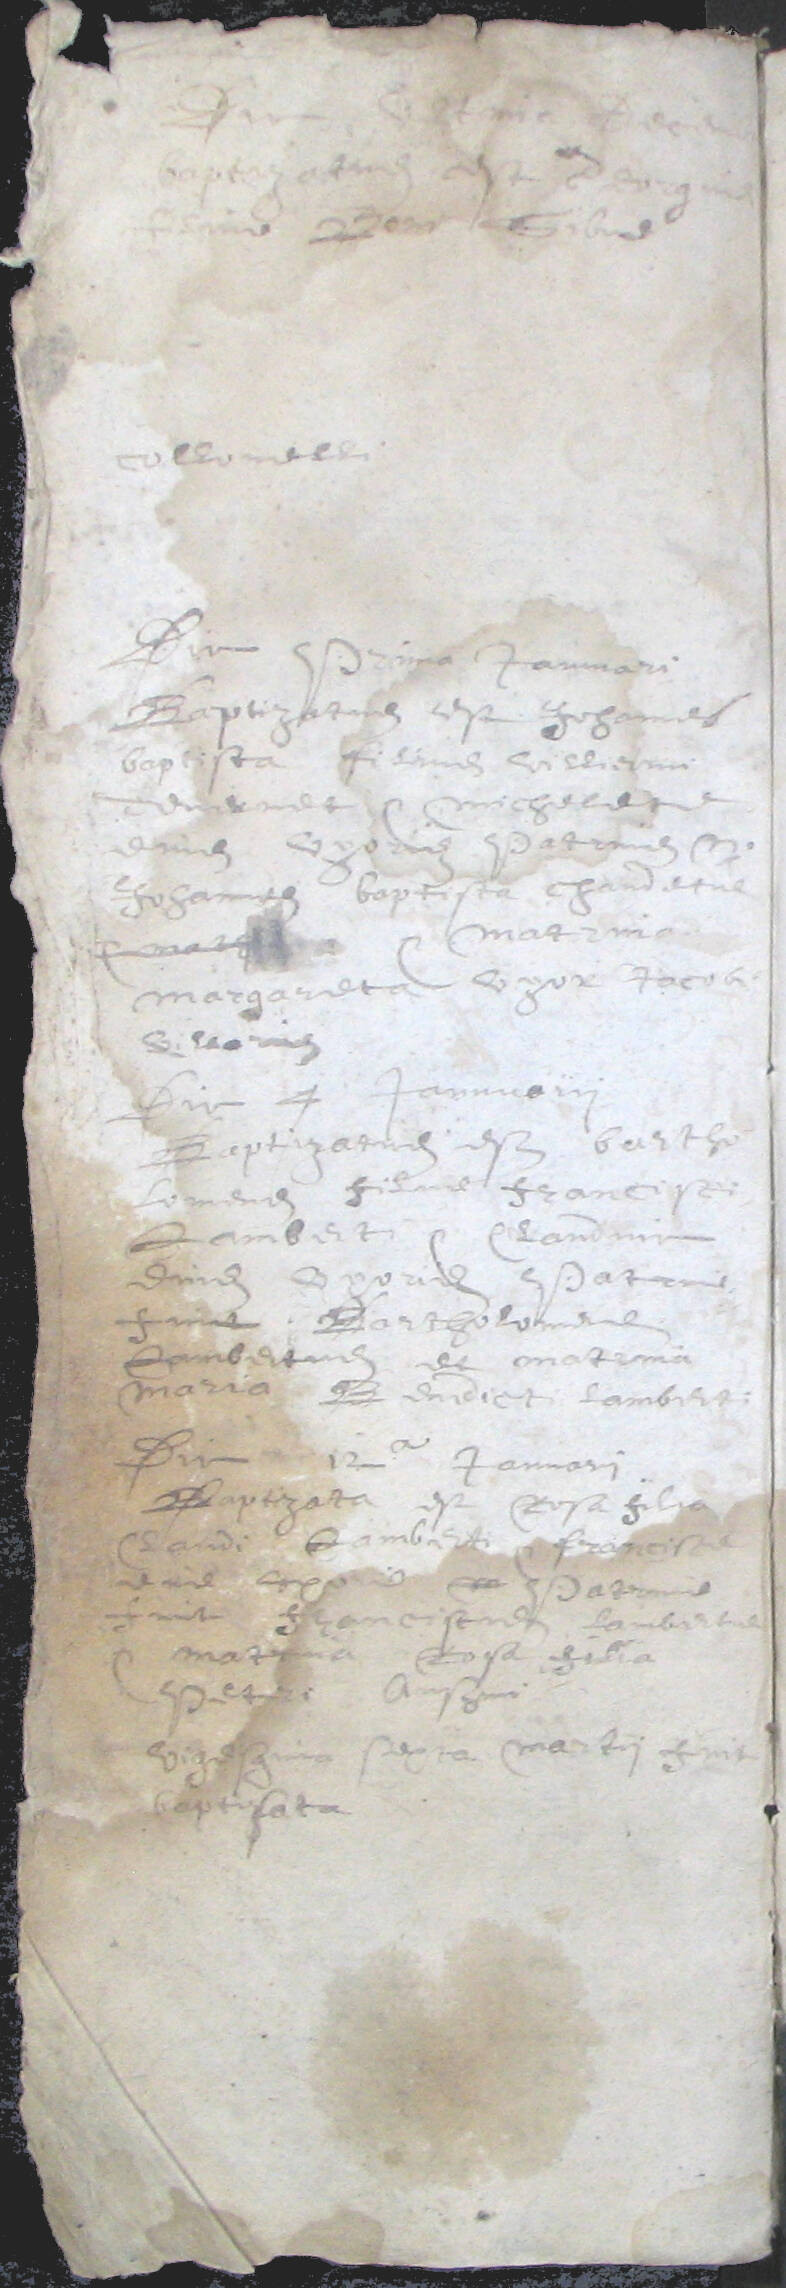 Die Ultima Decem
baptizatus est Georgius
filius
collonelli
Die Prima Januari
Baptizatus est Johannes
baptista filius Villiermi
& michelete
eius Uxoris Patrinus
Johannes baptista
& matrina
margareta Uxor Jacobi
Die 4 Januarij
Baptizatus est bartho
lomeus filius Francisci
Lamberti & Claudine
eius Uxoris Patrinus
fuit Bartholomeus
Lambertus et matrina
maria Benedicti Lamberti
Die 12ª Januarij
Baptizata est Rosa filia
Claudi Lamberti & francisce
eius Uxoris Patrinus
fuit Franciscus Lambertus
& matrina Rosa filia
Petri
Vigesima sexta Martij fuit
baptisata